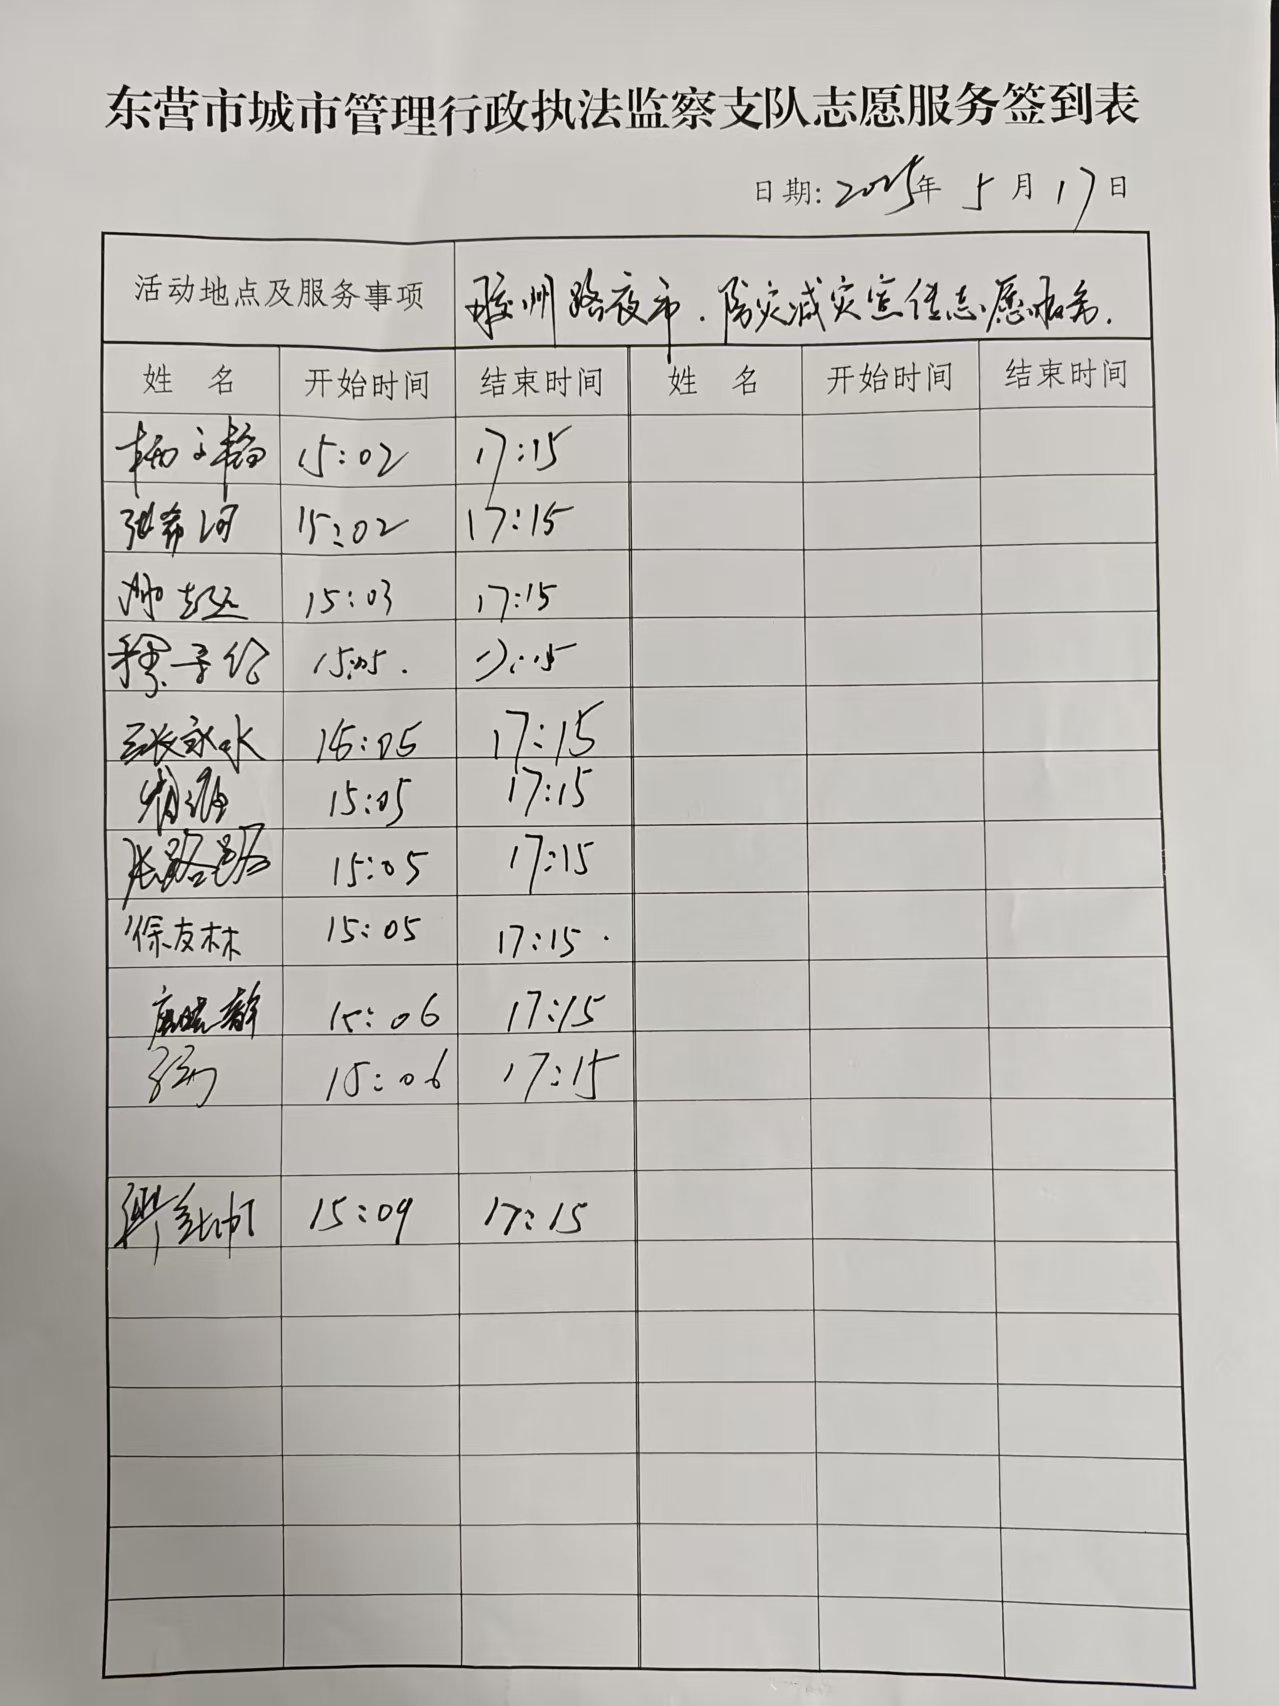 东营市城市管理行政执法监察支队志愿服务签到表
日期: 2025年 5月 17日
活动地点及服务事项 胶州路夜市.防灾减灾宣传志愿服务.
姓 名 开始时间 结束时间 姓 名 开始时间 结束时间
15:02 17:15
张希河 15:02 17:15
15:03 17:15
15:05. 17:15
张永水 15:05 17:15
15:05 17:15
张路路 15:05 17:15
徐友林 15:05 17:15.
15:06 17:15
15:06 17:15
15:09 17:15